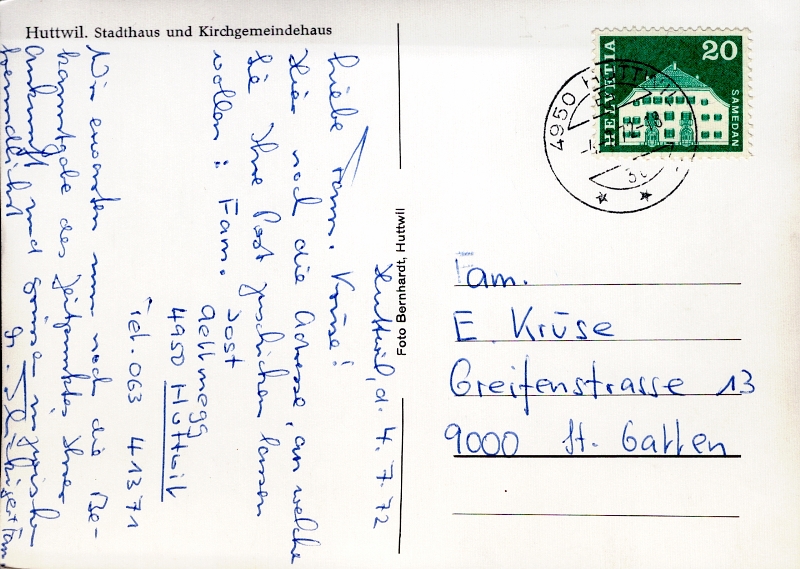 Huttwil. Stadthaus und Kirchgemeindehaus
Huttwil, d. 4. 7. 72
Liebe Fam. Krüse!
Hier noch die Adresse, an welche
Sie Ihre Post zuschicken lassen
wollen: Fam.
Jost
4950 Huttwil
Tel. 063 41371
Wir erwarten nur noch die Be-
kanntgabe des Zeitpunktes Ihrer
Ankunft und grüssen inzwischen
freundlichst
Foto Bernhardt, Huttwil
HELVETIA
20
SAMEDAN
4950 HUTTWIL
Fam.
E. Krüse
Greifenstrasse 13
9000 St. Gallen